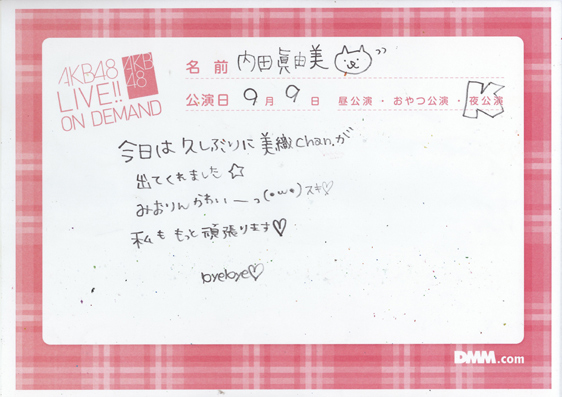 AKB48
LIVE!!
ON DEMAND
AKB
48
名前 内田眞由美
公演日 9月9日 昼公演・おやつ公演・夜公演
K
今日は久しぶりに美織chan.が
出てくれました☆
みおりんかわいーっ(・ω・)スキ♡
私ももっと頑張ります♡
byebye♡
DMM.com